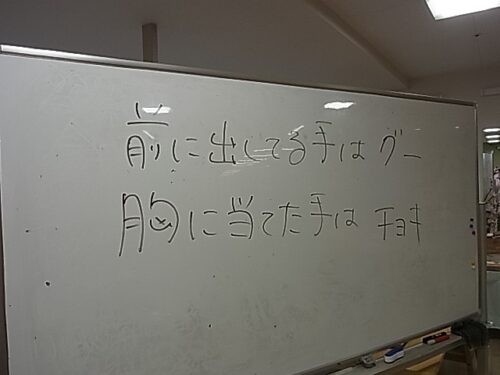 前に出してる手はグー
胸に当てた手はチョキ